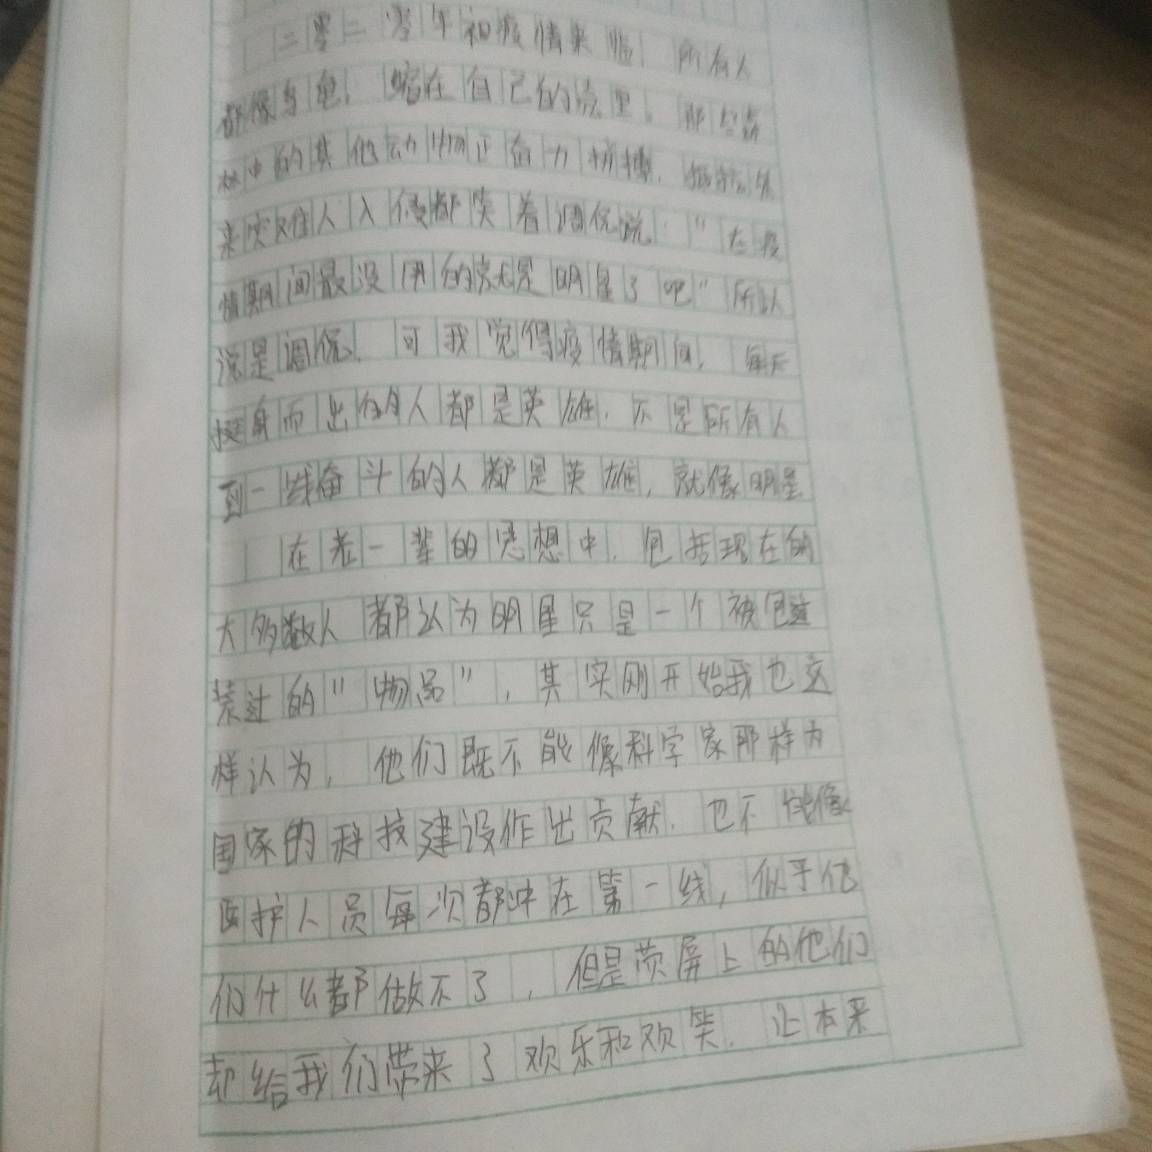 二零二零年初疫情来临，所有人
都像乌龟，缩在自己的壳里。那些森
林中的其他动物正奋力拼搏，抵抗外
来灾难人入侵都笑着调侃说："在疫
情期间最没用的就是明星了吧"所以
说是调侃，可我觉得疫情期间，每天
挺身而出的人都是英雄，不是所有人
到一线奋斗的人都是英雄，就像明星
在老一辈的思想中，包括现在的
大多数人都认为明星只是一个被包
装过的"物品"，其实刚开始我也这
样认为，他们既不能像科学家那样为
国家的科技建设作出贡献，也不能像
医护人员每次都冲在第一线，似乎他
们什么都做不了，但是荧屏上的他们
却给我们带来了欢乐和欢笑，让本来